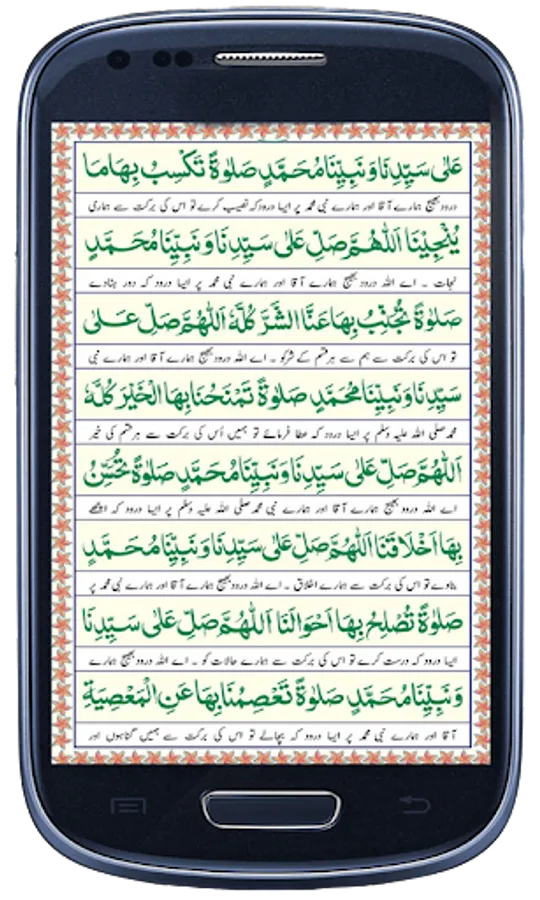 عَلٰى سَيِّدِنَا وَنَبِيِّنَا مُحَمَّدٍ صَلٰوةً تَكْسِبُ بِهَا مَا
درود بھیج ہمارے آقا اور ہمارے نبی محمد پر ایسا درود کہ نصیب کرے تو اس کی برکت سے ہماری
يُنْجِيْنَا اَللّٰهُمَّ صَلِّ عَلٰى سَيِّدِنَا وَنَبِيِّنَا مُحَمَّدٍ
نجات ۔ اے اللہ درود بھیج ہمارے آقا اور ہمارے نبی محمد پر ایسا درود کہ دور بنادے
صَلٰوةً تُجَنِّبُ بِهَا عَنَّا الشَّرَّ كُلَّهٗ اَللّٰهُمَّ صَلِّ عَلٰى
تو اس کی برکت سے ہم سے ہر قسم کے شر کو ۔ اے اللہ درود بھیج ہمارے آقا اور ہمارے نبی
سَيِّدِنَا وَنَبِيِّنَا مُحَمَّدٍ صَلٰوةً تَمْنَحُنَا بِهَا الْخَيْرَ كُلَّهٗ
محمد صلی اللہ علیہ وسلم پر ایسا درود کہ عطا فرمائے تو ہمیں اُس کی برکت سے ہر قسم کی خیر
اَللّٰهُمَّ صَلِّ عَلٰى سَيِّدِنَا وَنَبِيِّنَا مُحَمَّدٍ صَلٰوةً تُحَسِّنُ
اے اللہ درود بھیج ہمارے آقا اور ہمارے نبی محمد صلی اللہ علیہ وسلم پر ایسا درود کہ اچھے
بِهَا اَخْلَاقَنَا اَللّٰهُمَّ صَلِّ عَلٰى سَيِّدِنَا وَنَبِيِّنَا مُحَمَّدٍ
بناوے تو اس کی برکت سے ہمارے اخلاق ۔ اے اللہ درود بھیج ہمارے آقا اور ہمارے نبی محمد پر
صَلٰوةً تُصْلِحُ بِهَا اَحْوَالَنَا اَللّٰهُمَّ صَلِّ عَلٰى سَيِّدِنَا
ایسا درود کہ درست کرے تو اس کی برکت سے ہمارے حالات کو ۔ اے اللہ درود بھیج ہمارے
وَنَبِيِّنَا مُحَمَّدٍ صَلٰوةً تَعْصِمُنَا بِهَا عَنِ الْمَعْصِيَةِ
آقا اور ہمارے نبی محمد پر ایسا درود کہ بچالے تو اس کی برکت سے ہمیں گناہوں اور